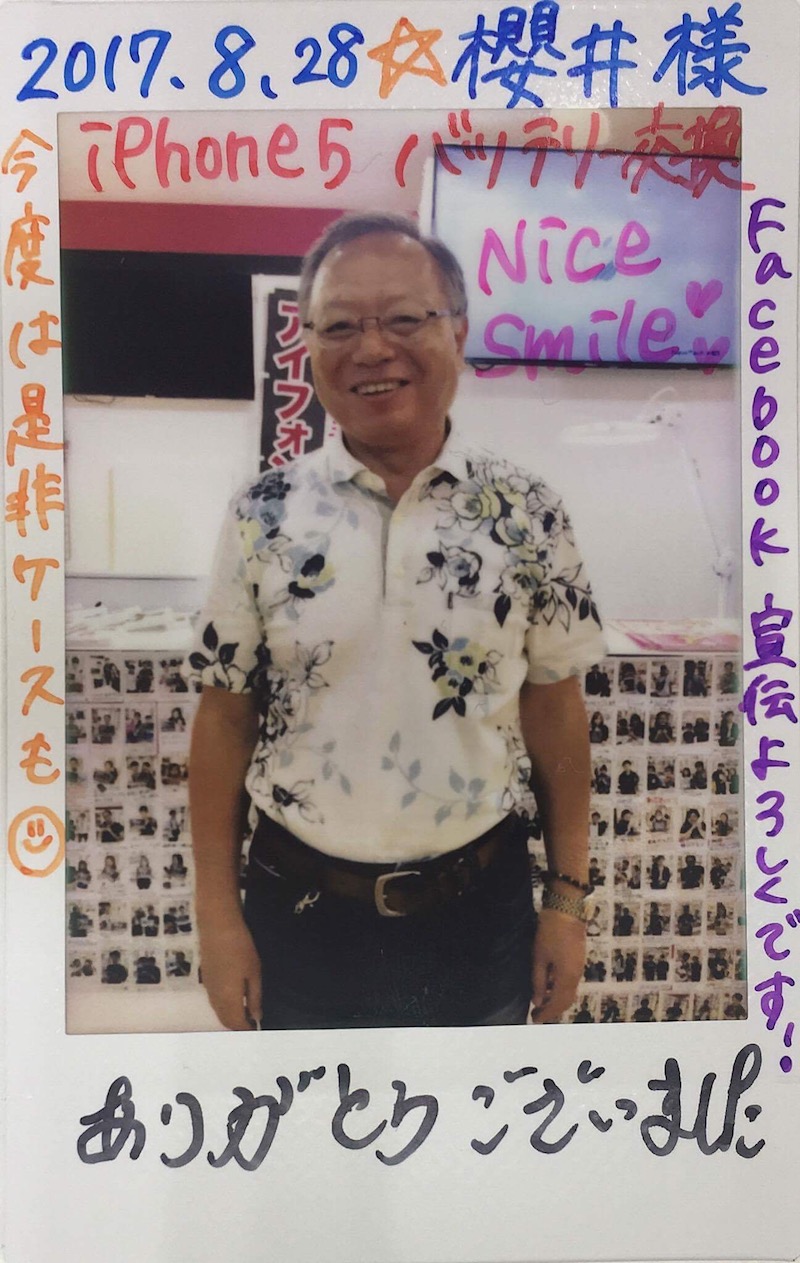 2017.8.28☆櫻井様
iPhone5 バッテリー交換
Nice
Smile
アイフォン
今度は是非ケースも
Facebook 宣伝よろしくです!
ありがとうございました